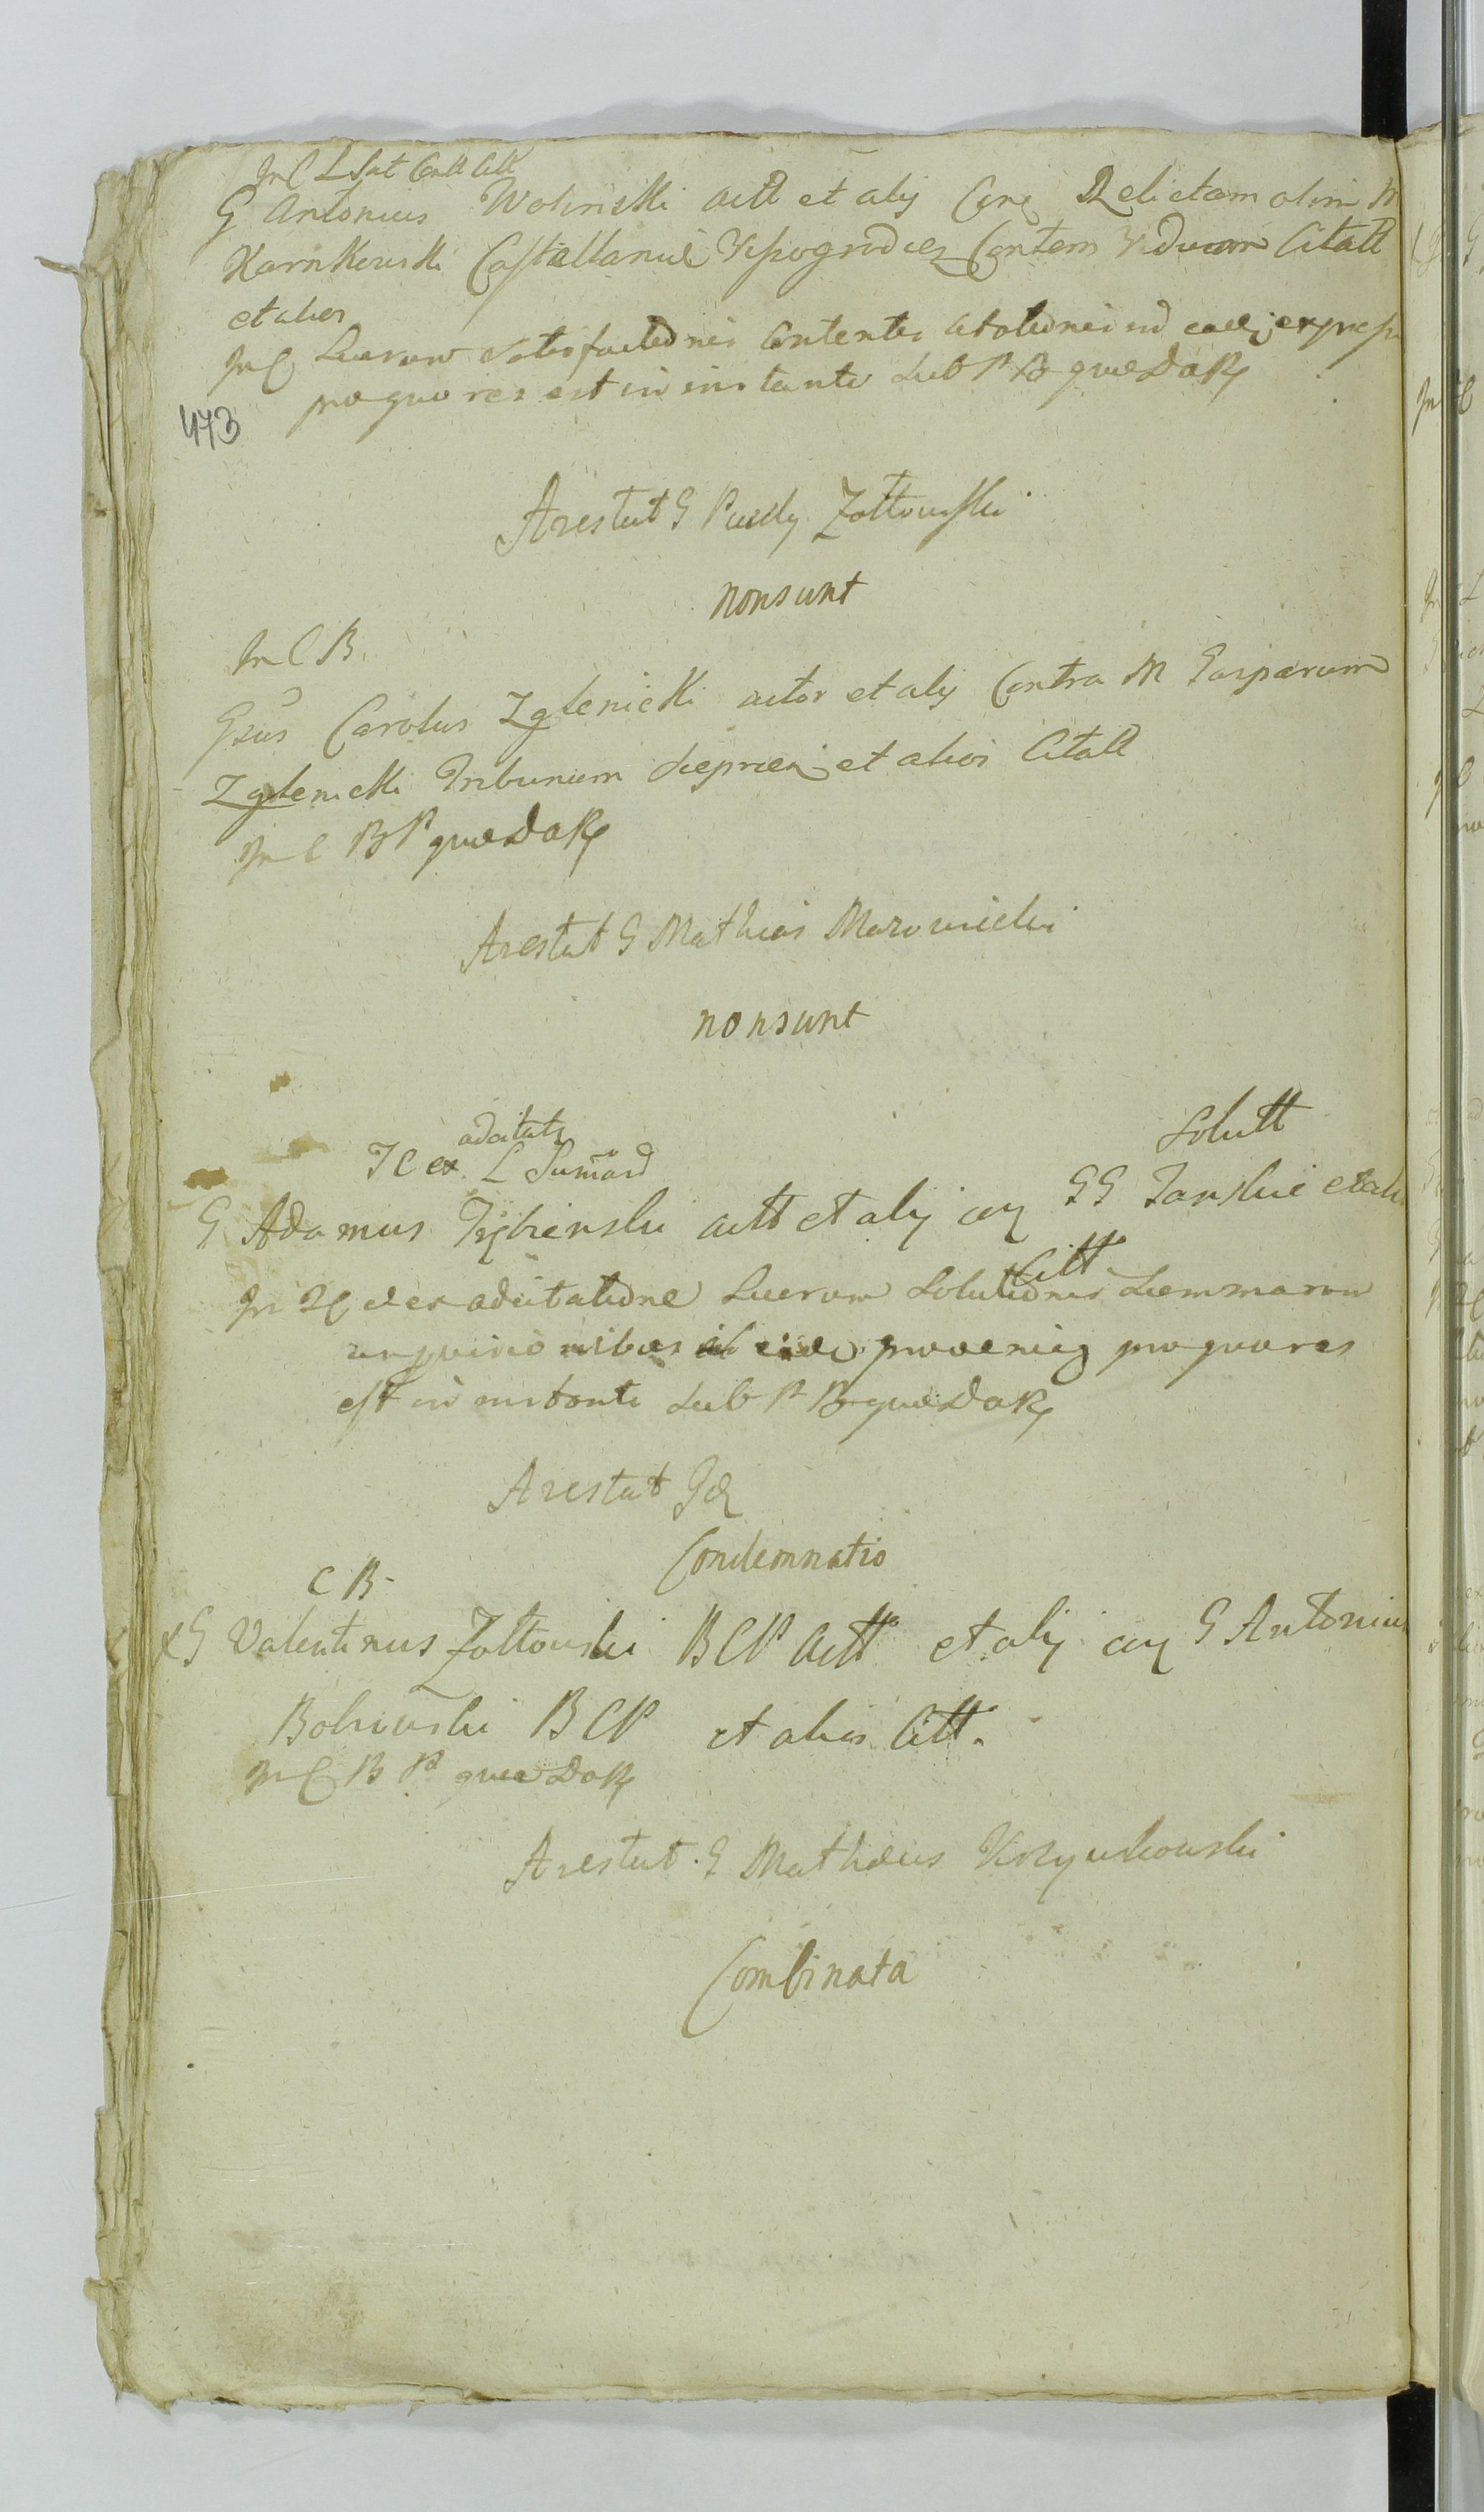 In C L Sat Cont Citt
G Antonius Wolinski actt et alij Con Relictam olim M
Karnkowski Castellanui Vissogrodien Contem Viduam Citatt
et alios
In C Lucrorum Satisfactionis Contentis Citationi in ea expressi
pro quo res est in instanti Sub P B quae Dop
473
Arestat G Pauly Zołtowski
non sunt
In C B
Gsus Carolus Zglenicki actor et alij Contra M Gasparum
Zglenicki Tribunum Sieprcen et alios Citatt
In C B P quae Dop
Arestat G Mathias Mazowiecki
non sunt
adcitat
T C ex L Sumard
Solutt
G Adamus Trębinski actt et alij con GG Janskie et ali
Citt
In T C et ex adcitatione Lucrorum Solutionis Summarum
provenien pro quo res
est in instanti Sub P B quae Dop
Arestat Id
Condemnatio
C B
x G Valentinus Zołtowski B C P Actt et alij con G Antonium
Bolewski B C P et alios Citt.
In C B P quae Dop
Arestat G Mathaeus
Combinata